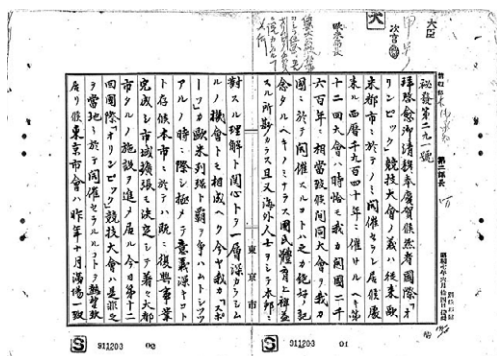 大臣
次官
秘發第二九一號
拜啓愈御清穆奉慶賀候然者國際「オ
リンピック」競技大會ノ義ハ從來歐
米都市ニ於テノミ開催セラレ居候處
來ル西曆千九百四十年ニ催サルヘキ第
十二回大會ハ時恰モ我カ開國二千
六百年ニ相當致候間同大會ヲ我カ
國ニ於テ開催スルコトハ之カ絶好ノ記
念タルヘキノミナラス國民體育上裨益
スル所尠カラス且又海外人士ヲシテ本邦ニ
對スル理解ト關心トヲ一層深カラシム
ルノ機會トモ相成ヘク今ヤ我カ「スポ
ーツ」カ歐米列強ト覇ヲ爭ハムトシツツ
アルノ時ニ際シ極メテ意義深キコト
ト存候本市ニ於テハ既ニ復興事業
完成シ市域擴張モ決定シテ著々大都
市タルノ施設ヲ進メ居ル今日第十二
回國際「オリンピック」競技大會ハ是非之
ヲ當地ニ於テ開催セラルルコトヲ熱望致
居リ候東京市會ハ昨年十月滿場一致
東京市
S 911203 02
S 911203 01